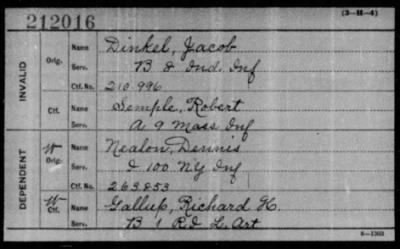 212016
(3-H-4)
INVALID
Orig.
Name Dinkel, Jacob
Serv. B 8 Ind. Inf
Ctf. No. 210.996
Ctf.
Name Semple, Robert
Serv. A 9 Mass Inf
DEPENDENT
W
Orig.
Name Nealon, Dennis
Serv. I 100 NY Inf
Ctf. No. 263853
W
Ctf.
Name Gallup, Richard H.
Serv. B 1 R.I. L. Art